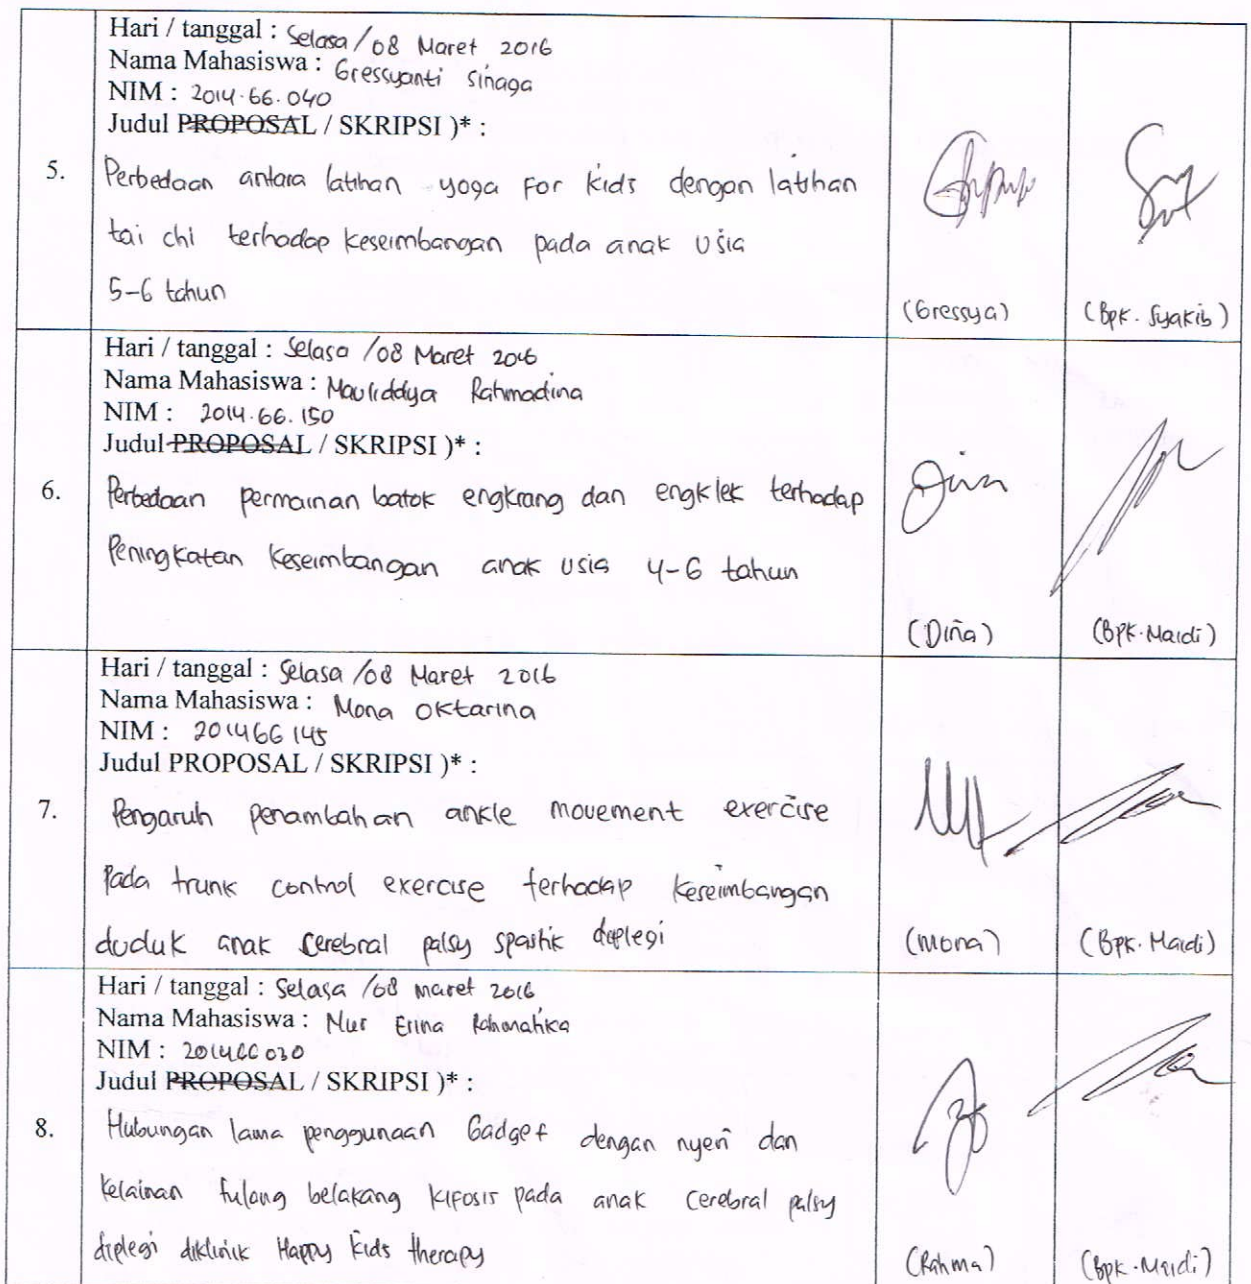 Hari / tanggal : Selasa / 08 Maret 2016
Nama Mahasiswa : Gressyanti Sinaga
NIM : 2014.66.040
Judul PROPOSAL / SKRIPSI )* :
5.
Perbedaan antara latihan yoga For kids dengan latihan
tai chi terhadap keseimbangan pada anak usia
5-6 tahun
(Gressya)
(Bpk. Syakib)
Hari / tanggal : Selasa / 08 Maret 2016
Nama Mahasiswa : Mauliddya Rahmadina
NIM : 2014.66.150
Judul PROPOSAL / SKRIPSI )* :
6.
Perbedaan permainan batok engkrang dan engklek terhadap
Peningkatan keseimbangan anak usia 4-6 tahun
(Dina)
(Bpk. Maidi)
Hari / tanggal : Selasa / 08 Maret 2016
Nama Mahasiswa : Mona Oktarina
NIM : 201466145
Judul PROPOSAL / SKRIPSI )* :
7.
Pengaruh penambahan ankle movement exercise
Pada trunk control exercise terhadap keseimbangan
duduk anak cerebral palsy spastik diplegi
(Mona)
(Bpk. Maidi)
Hari / tanggal : Selasa / 08 maret 2016
Nama Mahasiswa : Nur Erina Rahmatika
NIM : 201466030
Judul PROPOSAL / SKRIPSI )* :
8.
Hubungan lama penggunaan Gadget dengan nyeri dan
kelainan tulang belakang kifosis pada anak cerebral palsy
diplegi diklinik Happy kids therapy
(Rahma)
(Bpk. Maidi)